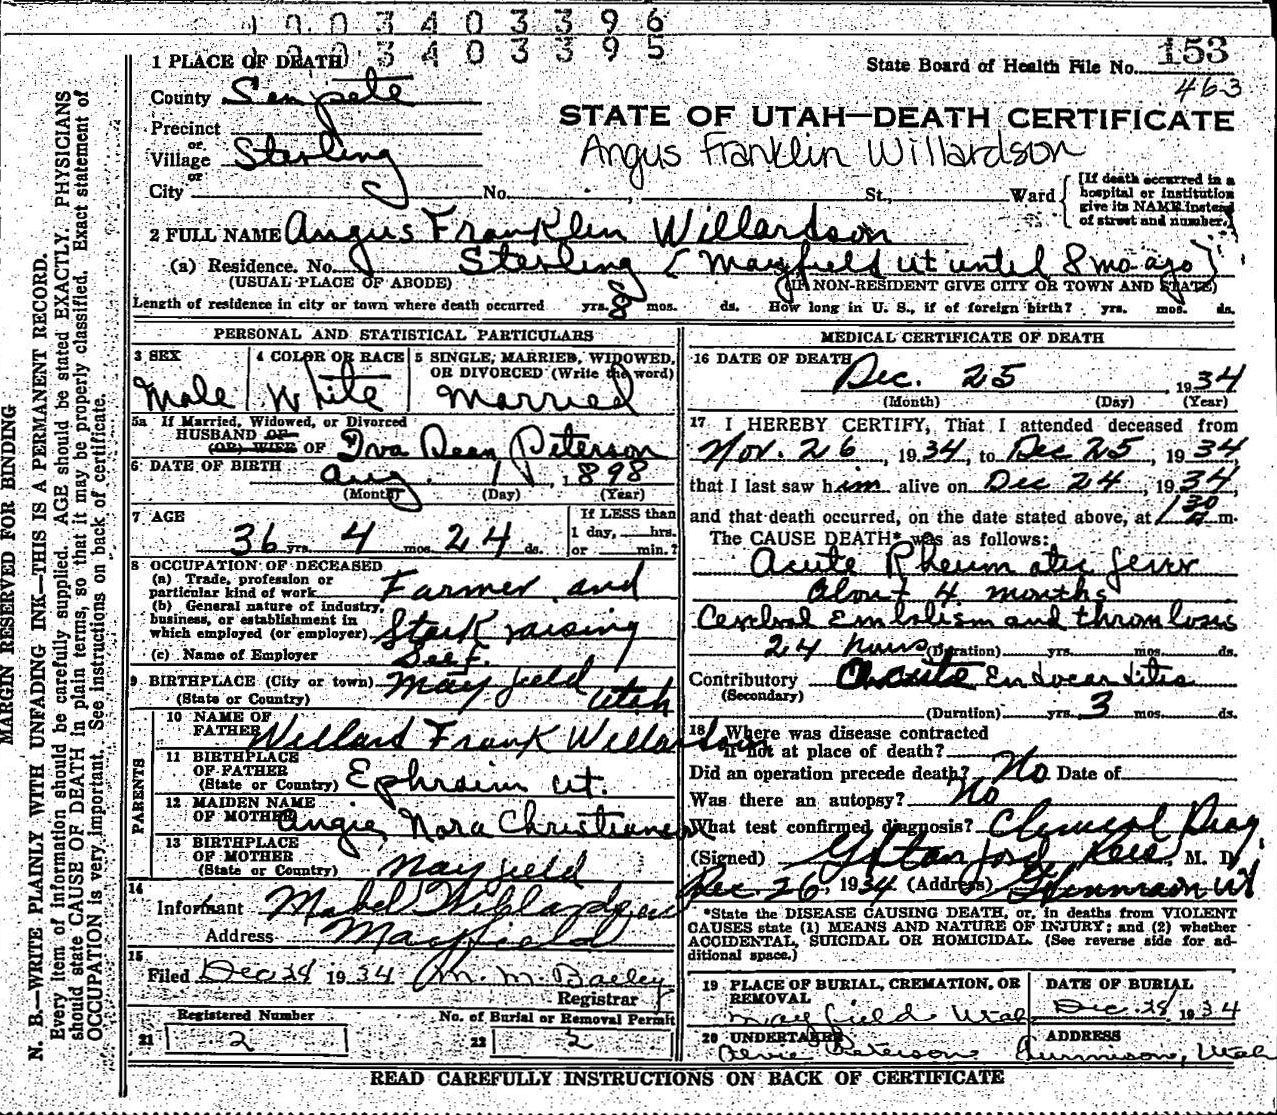 1003403396
1003403395
1 PLACE OF DEATH
State Board of Health File No. 153
463
County Sanpete
STATE OF UTAH—DEATH CERTIFICATE
Precinct
or
Village Sterling
Angus Franklin Willardson
or
City No. St., Ward
[If death occurred in a
hospital or institution
give its NAME instead
of street and number.]
2 FULL NAME Angus Franklin Willardson
(a) Residence. No. Sterling (Mayfield Ut until 8 mo ago)
(USUAL PLACE OF ABODE) (IF NON-RESIDENT GIVE CITY OR TOWN AND STATE)
Length of residence in city or town where death occurred yrs. 8 mos. ds. How long in U. S., if of foreign birth? yrs. mos. ds.
PERSONAL AND STATISTICAL PARTICULARS
3 SEX 4 COLOR OR RACE 5 SINGLE, MARRIED, WIDOWED,
OR DIVORCED (Write the word)
Male White Married
5a If Married, Widowed, or Divorced
HUSBAND OF
(OR) WIFE OF Iva Deen Peterson
6 DATE OF BIRTH Aug. 1, 1898
(Month) (Day) (Year)
7 AGE If LESS than
36 yrs. 4 mos. 24 ds. 1 day, hrs.
or min.?
8 OCCUPATION OF DECEASED
(a) Trade, profession or
particular kind of work Farmer and
(b) General nature of industry,
business, or establishment in
which employed (or employer) Stock raising
(c) Name of Employer Self.
9 BIRTHPLACE (City or town) Mayfield
(State or Country) Utah
PARENTS
10 NAME OF
FATHER Willard Frank Willardson
11 BIRTHPLACE
OF FATHER
(State or Country) Ephraim Ut.
12 MAIDEN NAME
OF MOTHER Angie Nora Christiansen
13 BIRTHPLACE
OF MOTHER
(State or Country) Mayfield
14
Informant Mabel Willardson
Address Mayfield
15
Filed Dec 28 1934 M. M. Bailey
Registrar
Registered Number No. of Burial or Removal Permit
21 2 22 2
MEDICAL CERTIFICATE OF DEATH
16 DATE OF DEATH
Dec. 25, 1934
(Month) (Day) (Year)
17 I HEREBY CERTIFY, That I attended deceased from
Nov. 26, 1934, to Dec 25, 1934
that I last saw him alive on Dec 24, 1934,
and that death occurred, on the date stated above, at 1 30 m.
The CAUSE DEATH* was as follows:
Acute Rheumatic fever
about 4 months
Cerebral Embolism and thrombosis
24 hours (Duration) yrs. mos. ds.
Contributory Acute Endocarditis
(Secondary)
(Duration) yrs. 3 mos. ds.
18 Where was disease contracted
if not at place of death?
Did an operation precede death? No Date of
Was there an autopsy? No
What test confirmed diagnosis? Clinical Diag.
(Signed) G Stanford Rees, M. D.
Dec. 26, 1934 (Address) Gunnison Ut
*State the DISEASE CAUSING DEATH, or, in deaths from VIOLENT
CAUSES state (1) MEANS AND NATURE OF INJURY; and (2) whether
ACCIDENTAL, SUICIDAL OR HOMICIDAL. (See reverse side for ad-
ditional space.)
19 PLACE OF BURIAL, CREMATION, OR
REMOVAL
Mayfield Utah
DATE OF BURIAL
Dec. 28, 1934
20 UNDERTAKER ADDRESS
Peterson Gunnison, Utah
READ CAREFULLY INSTRUCTIONS ON BACK OF CERTIFICATE
MARGIN RESERVED FOR BINDING
N. B.—WRITE PLAINLY WITH UNFADING INK—THIS IS A PERMANENT RECORD.
Every item of information should be carefully supplied. AGE should be stated EXACTLY. PHYSICIANS
should state CAUSE OF DEATH in plain terms, so that it may be properly classified. Exact statement of
OCCUPATION is very important. See instructions on back of certificate.